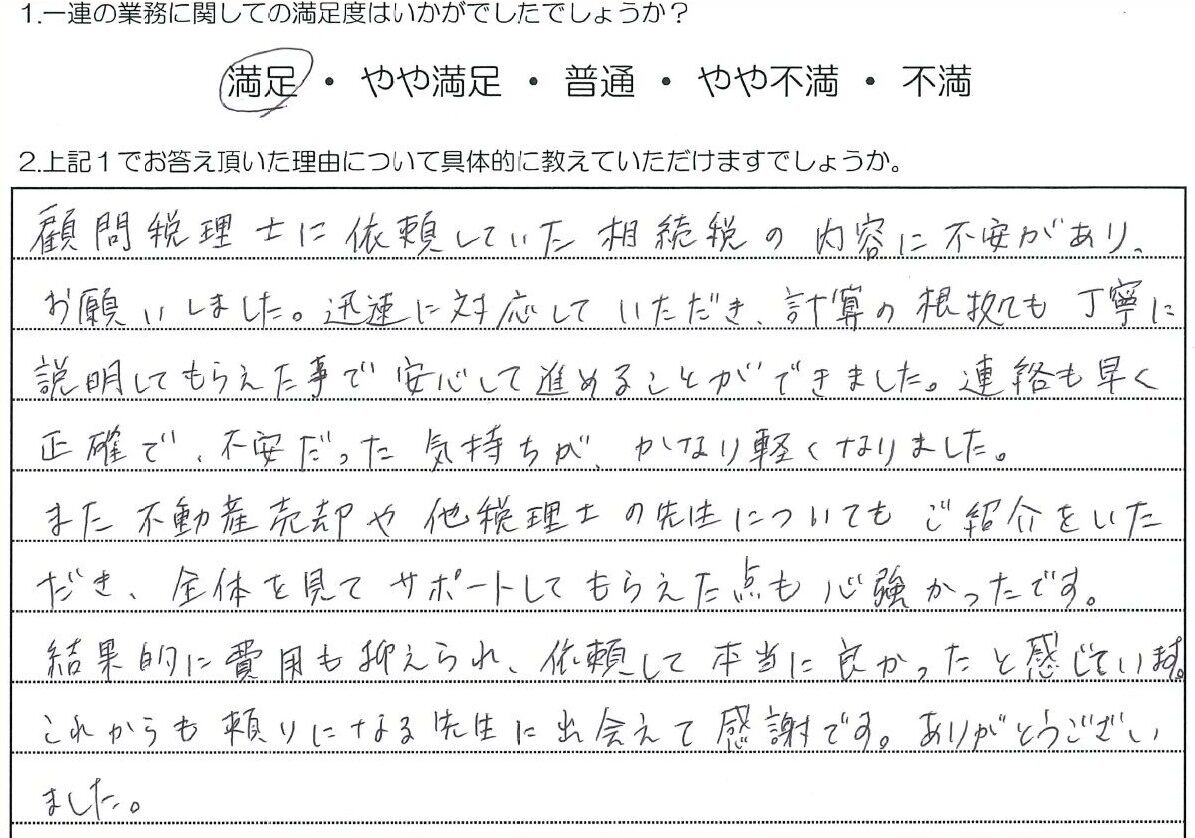 1.一連の業務に関しての満足度はいかがでしたでしょうか？
満足 ・ やや満足 ・ 普通 ・ やや不満 ・ 不満
2.上記１でお答え頂いた理由について具体的に教えていただけますでしょうか。
顧問税理士に依頼していた相続税の内容に不安があり、
お願いしました。迅速に対応していただき、計算の根拠も丁寧に
説明してもらえた事で安心して進めることができました。連絡も早く
正確で、不安だった気持ちが、かなり軽くなりました。
また不動産売却や他税理士の先生についてもご紹介をいた
だき、全体を見てサポートしてもらえた点も心強かったです。
結果的に費用も抑えられ、依頼して本当に良かったと感じています。
これからも頼りになる先生に出会えて感謝です。ありがとうござい
ました。